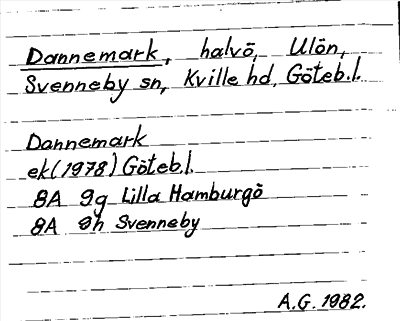 Dannemark, halvö, Ulön,
Svenneby sn, Kville hd, Göteb.l.
Dannemark
ek(1978) Göteb.l.
8A 9g Lilla Hamburgö
8A 9h Svenneby
A.G. 1982.